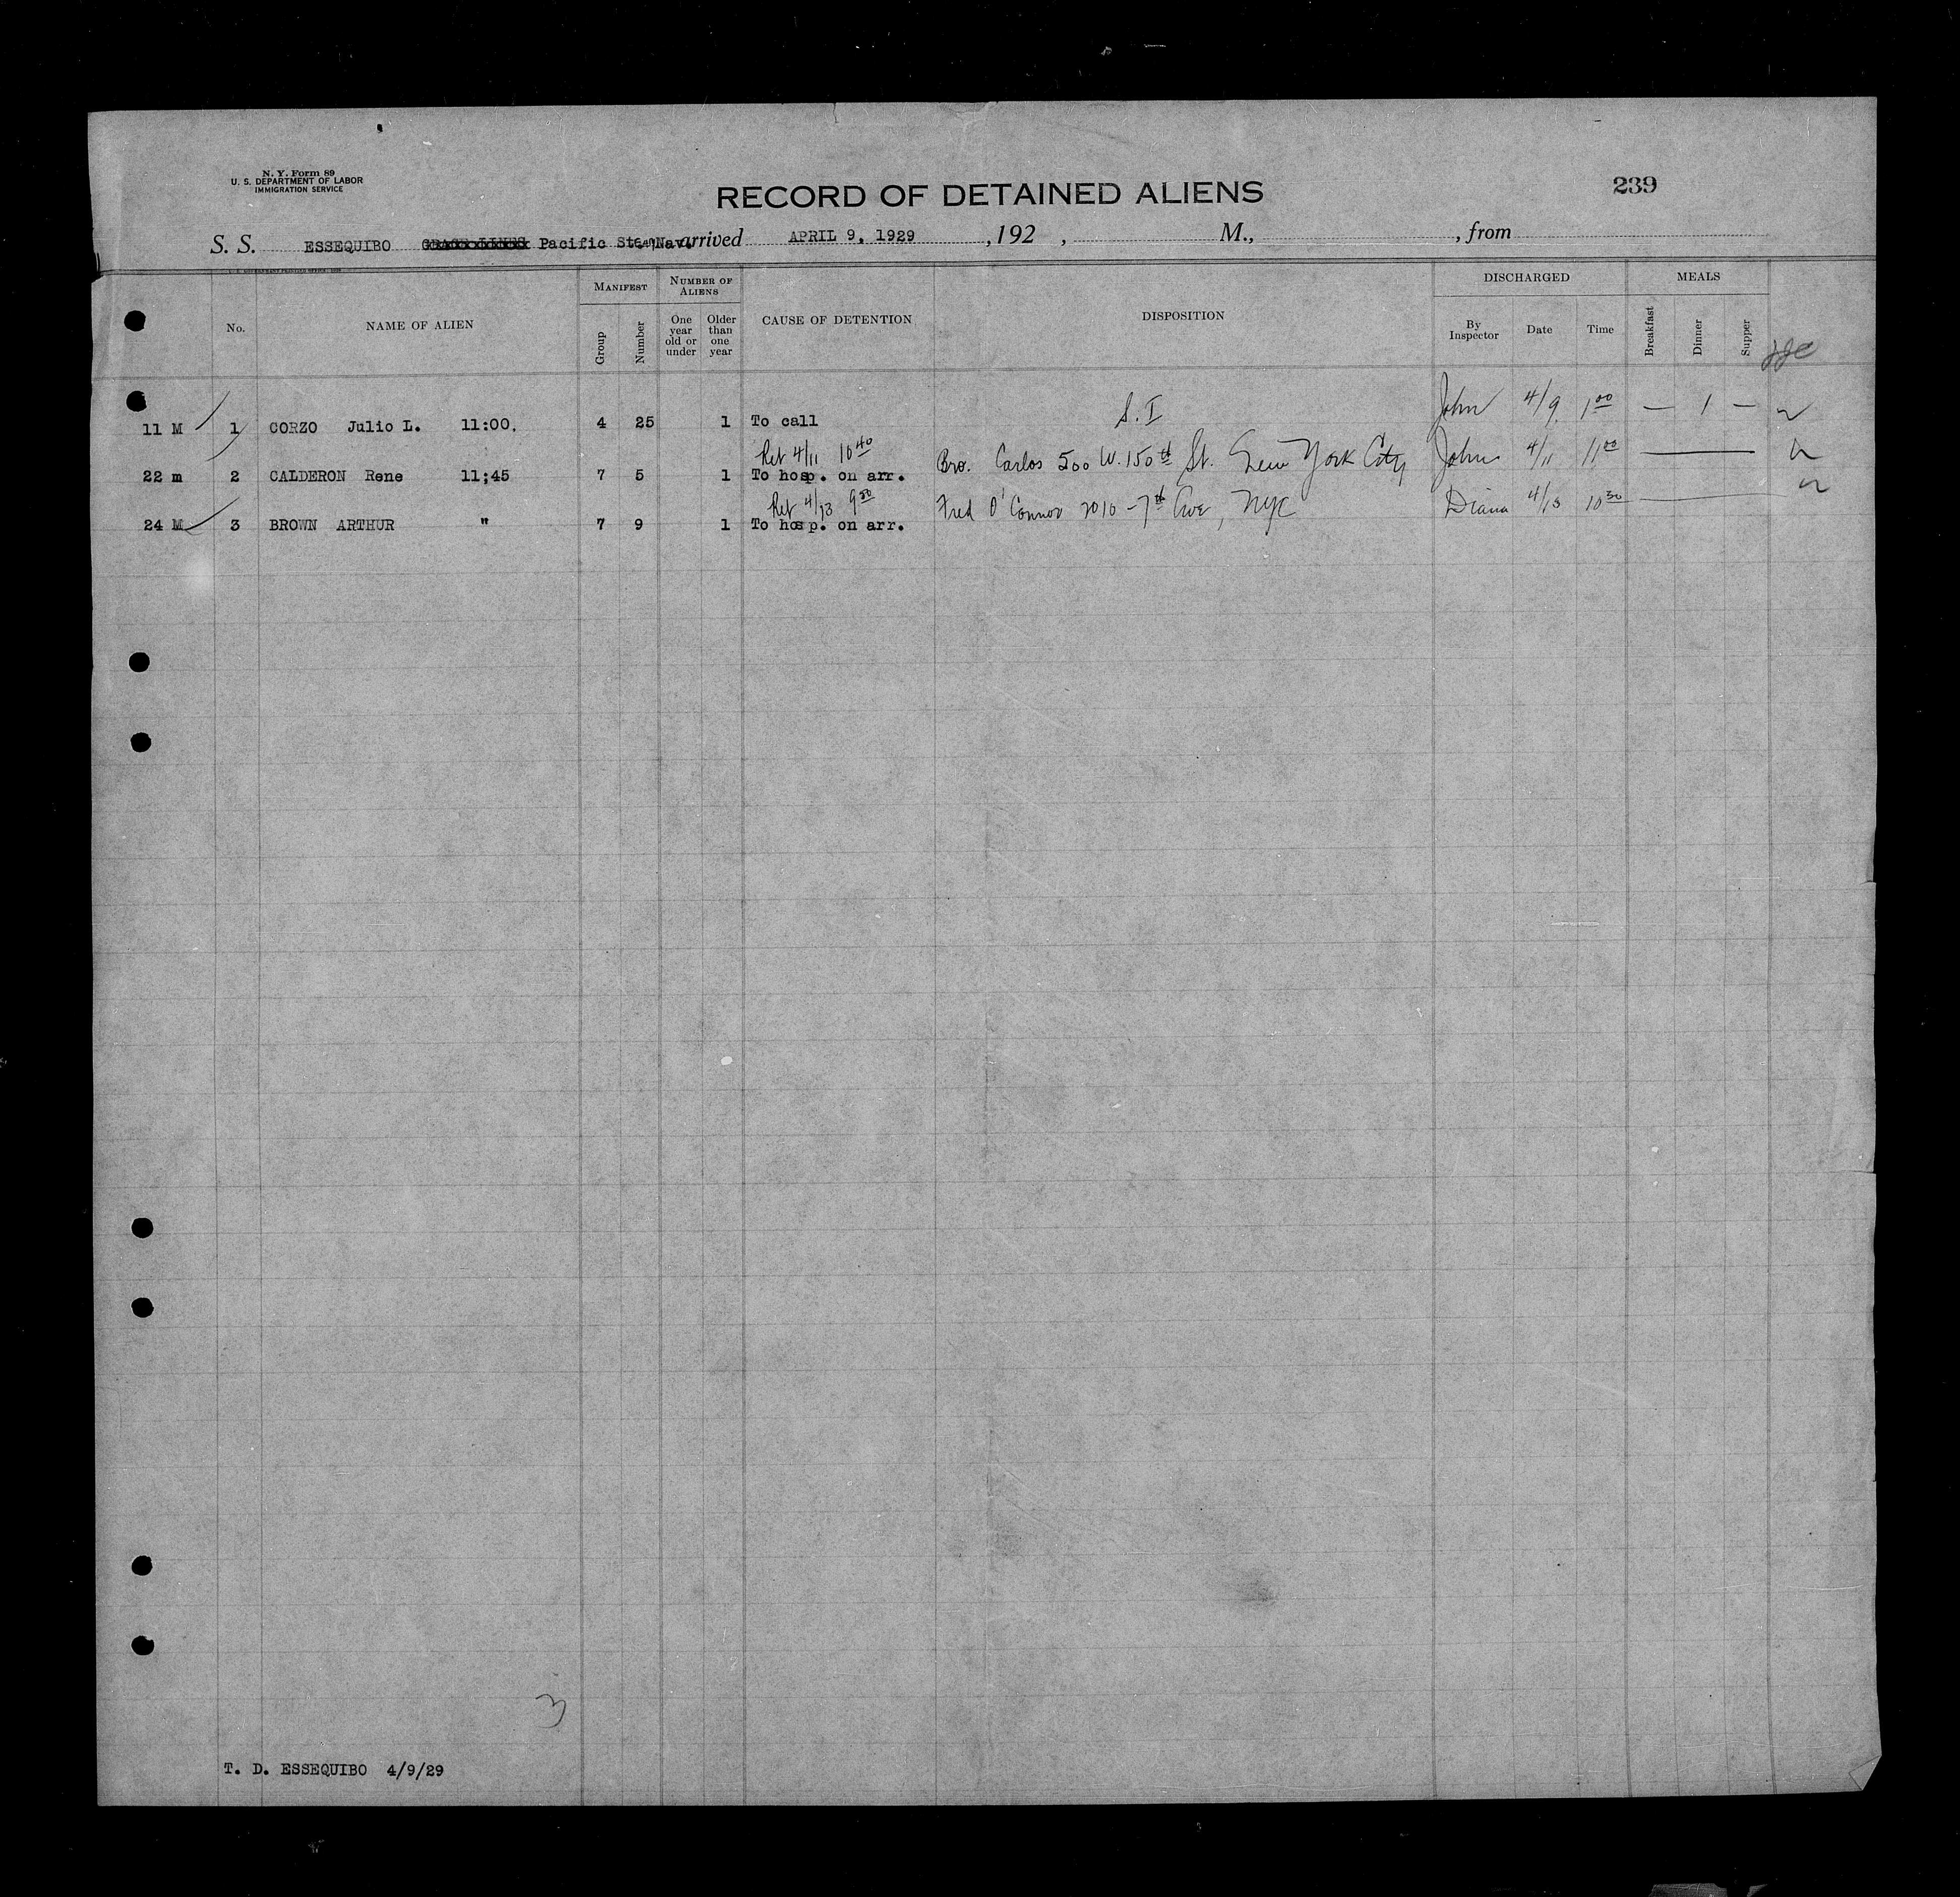 N. Y. Form 89
U. S. DEPARTMENT OF LABOR
IMMIGRATION SERVICE
RECORD OF DETAINED ALIENS
239
S. S. ESSEQUIBO Pacific Steam Nav. arrived APRIL 9, 1929 , 192 , M., , from
No. NAME OF ALIEN MANIFEST Group Number NUMBER OF ALIENS One year old or under Older than one year CAUSE OF DETENTION DISPOSITION DISCHARGED By Inspector Date Time MEALS Breakfast Dinner Supper
11 M 1 CORZO Julio L. 11:00. 4 25 1 To call S. I John 4/9 1 00 — 1 —
Ret 4/11 10 40
22 m 2 CALDERON Rene 11;45 7 5 1 To hosp. on arr. Bro. Carlos 500 W. 150th St. New York City John 4/11 11 00
Ret 4/13 9 50
24 M 3 BROWN ARTHUR " 7 9 1 To hosp. on arr. Fred O'Connor 2010 - 7th Ave, NYC Diana 4/13 10 30
3
T. D. ESSEQUIBO 4/9/29